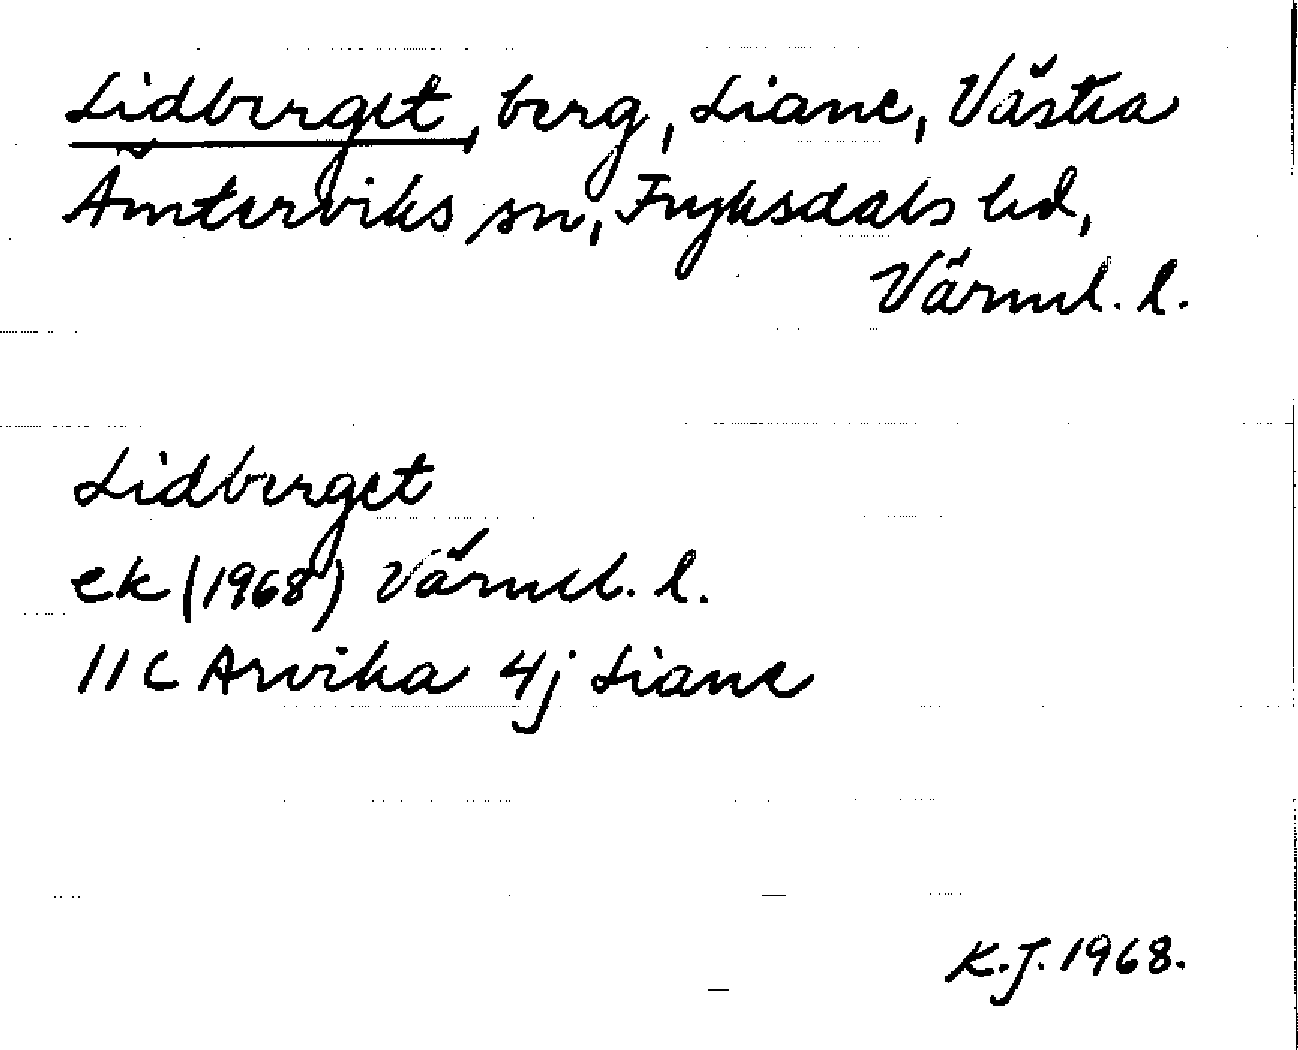 Lidberget, berg, Liane, Västra
Ämterviks sn, Fryksdals hd,
Värml. l.
Lidberget
ek (1968) Värml. l.
11C Arvika 4j Liane
K.J. 1968.